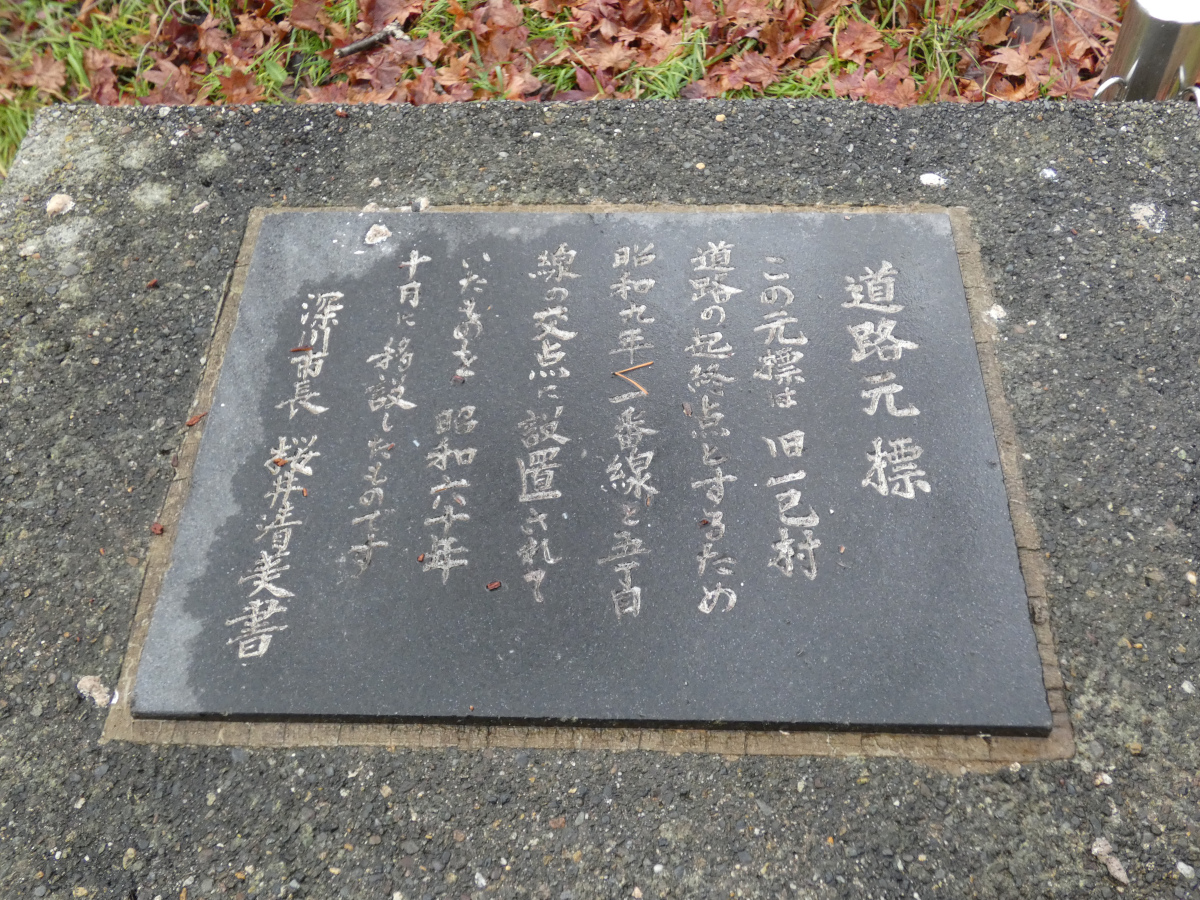 道路元標
この元標は 旧一已村
道路の起終点とするため
昭和九年 一番線と五丁目
線の交点に設置されて
いたものを 昭和六十年
十月に移設したものです
深川市長 桜井清美書